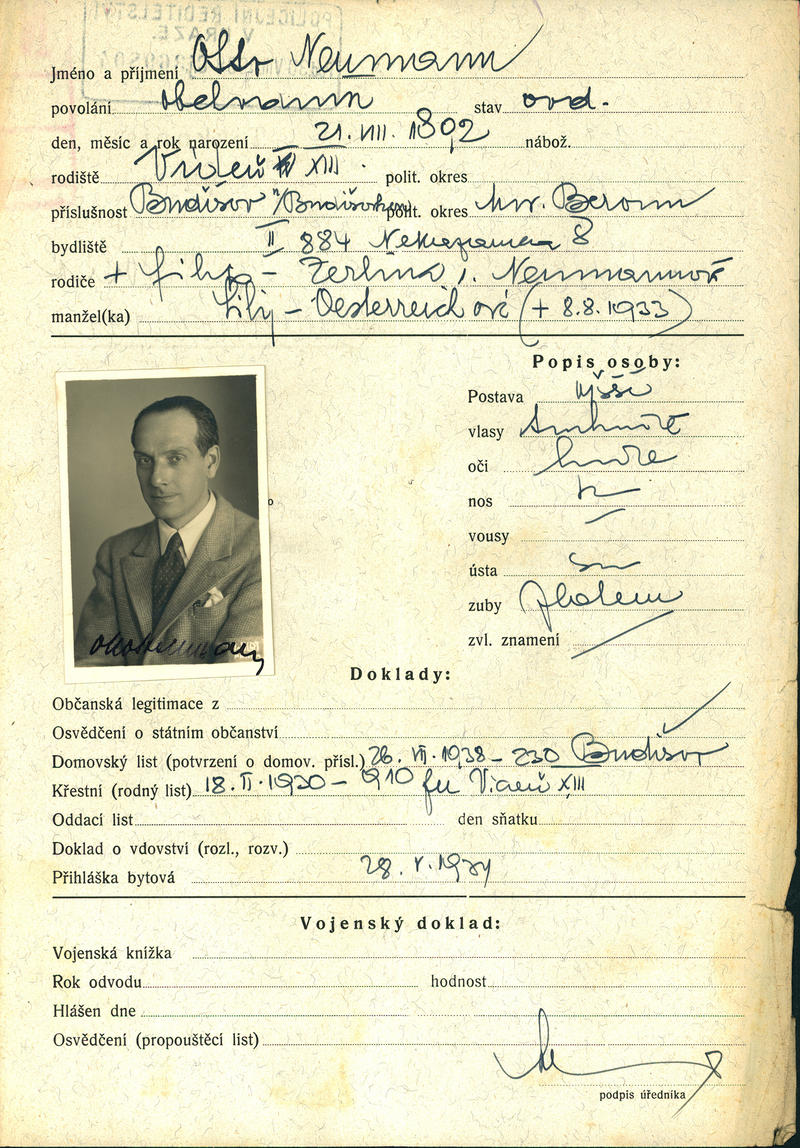 POLICEJNÍ ŘEDITELSTVÍ
V PRAZE.
Jméno a příjmení Otto Neumann
povolání stav ovd.
den, měsíc a rok narození 21. VIII. 1892 nábož.
rodiště Vídeň XIII polit. okres
příslušnost Budišov n/Budišovkou polit. okres Mor. Beroun
bydliště II 884 Nekazanka 8
rodiče + Filip - Zerlina r. Neumannová
manžel(ka) Lily - Oesterreichová (+ 8.8.1933)
Popis osoby:
Postava vyšší
vlasy
oči
nos
vousy –
ústa
zuby
zvl. znamení
Otto Neumann
Doklady:
Občanská legitimace z
Osvědčení o státním občanství
Domovský list (potvrzení o domov. přísl.) 26. VII. 1938 - 230 Budišov
Křestní (rodný list) 18. II. 1930 - 910 fu Vídeň XIII
Oddací list den sňatku
Doklad o vdovství (rozl., rozv.)
Přihláška bytová 28. V. 1934
Vojenský doklad:
Vojenská knížka
Rok odvodu hodnost
Hlášen dne
Osvědčení (propouštěcí list)
podpis úředníka